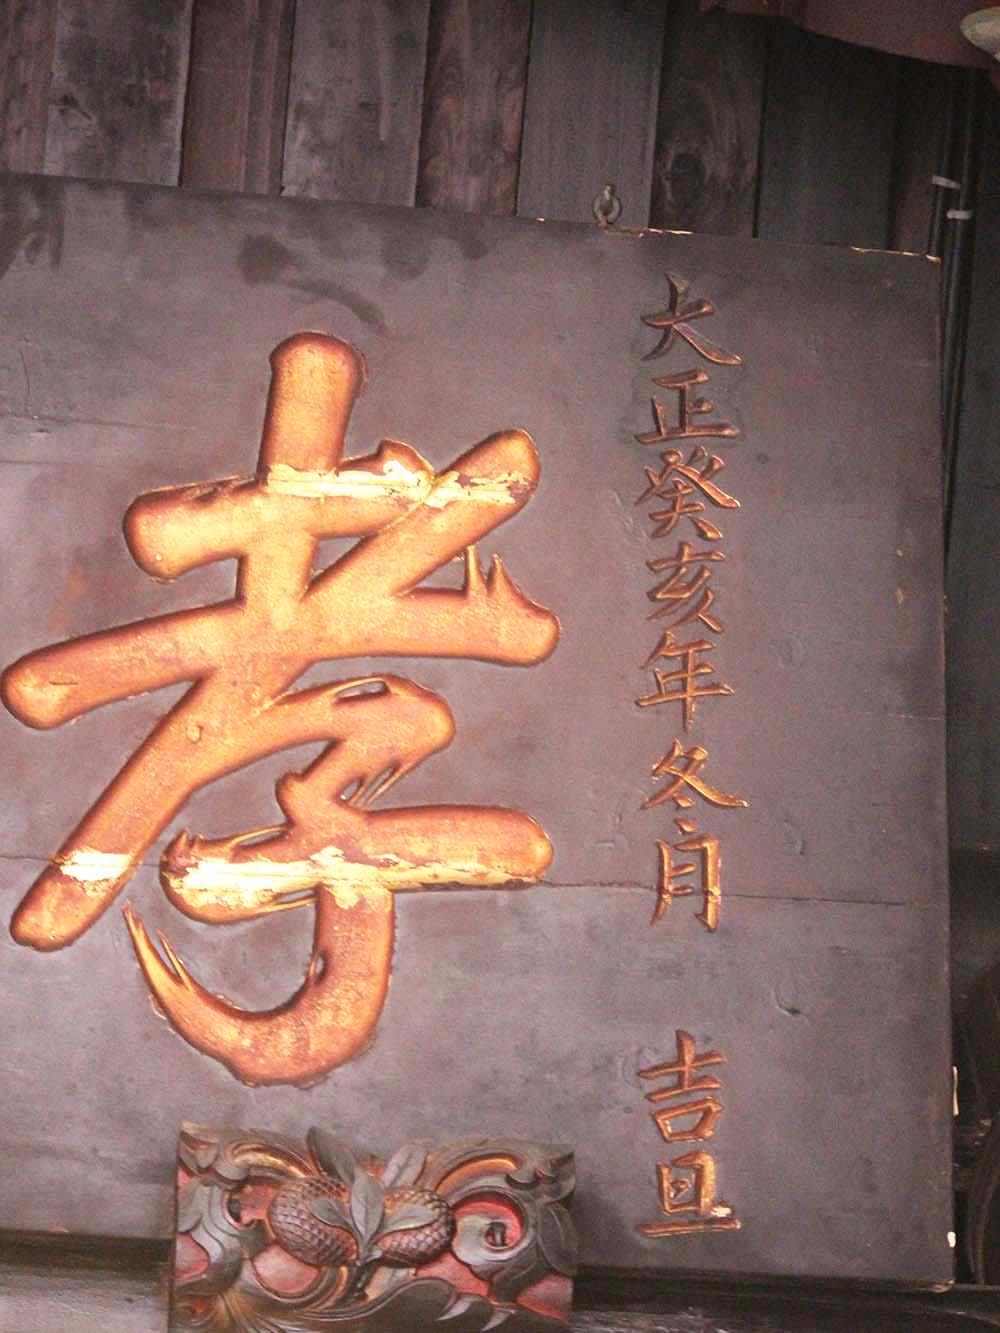 大正癸亥年冬月 吉旦
孝